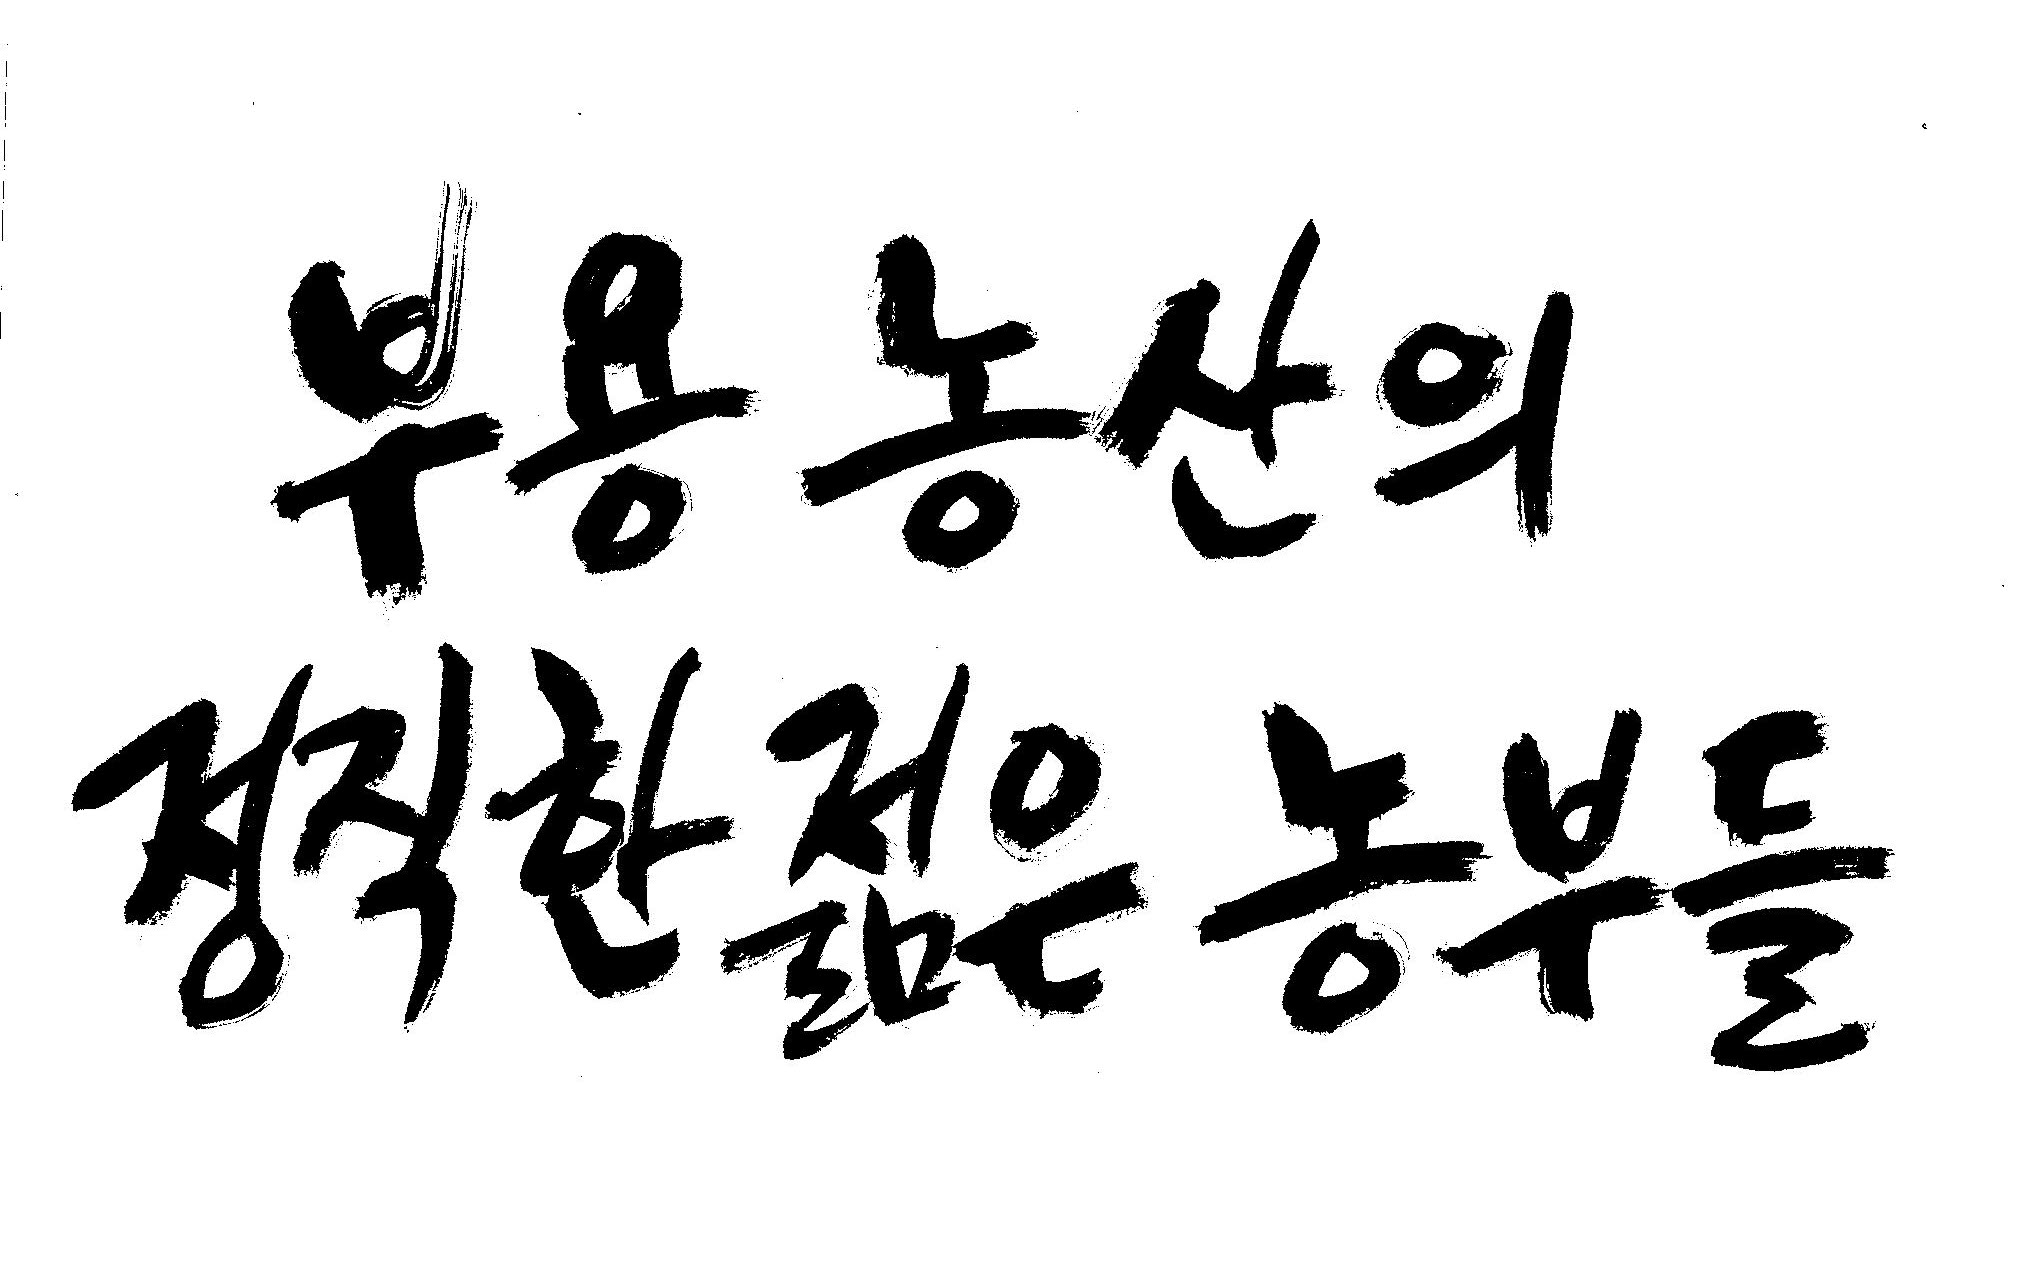 부용 농산의
정직한 젊은 농부들